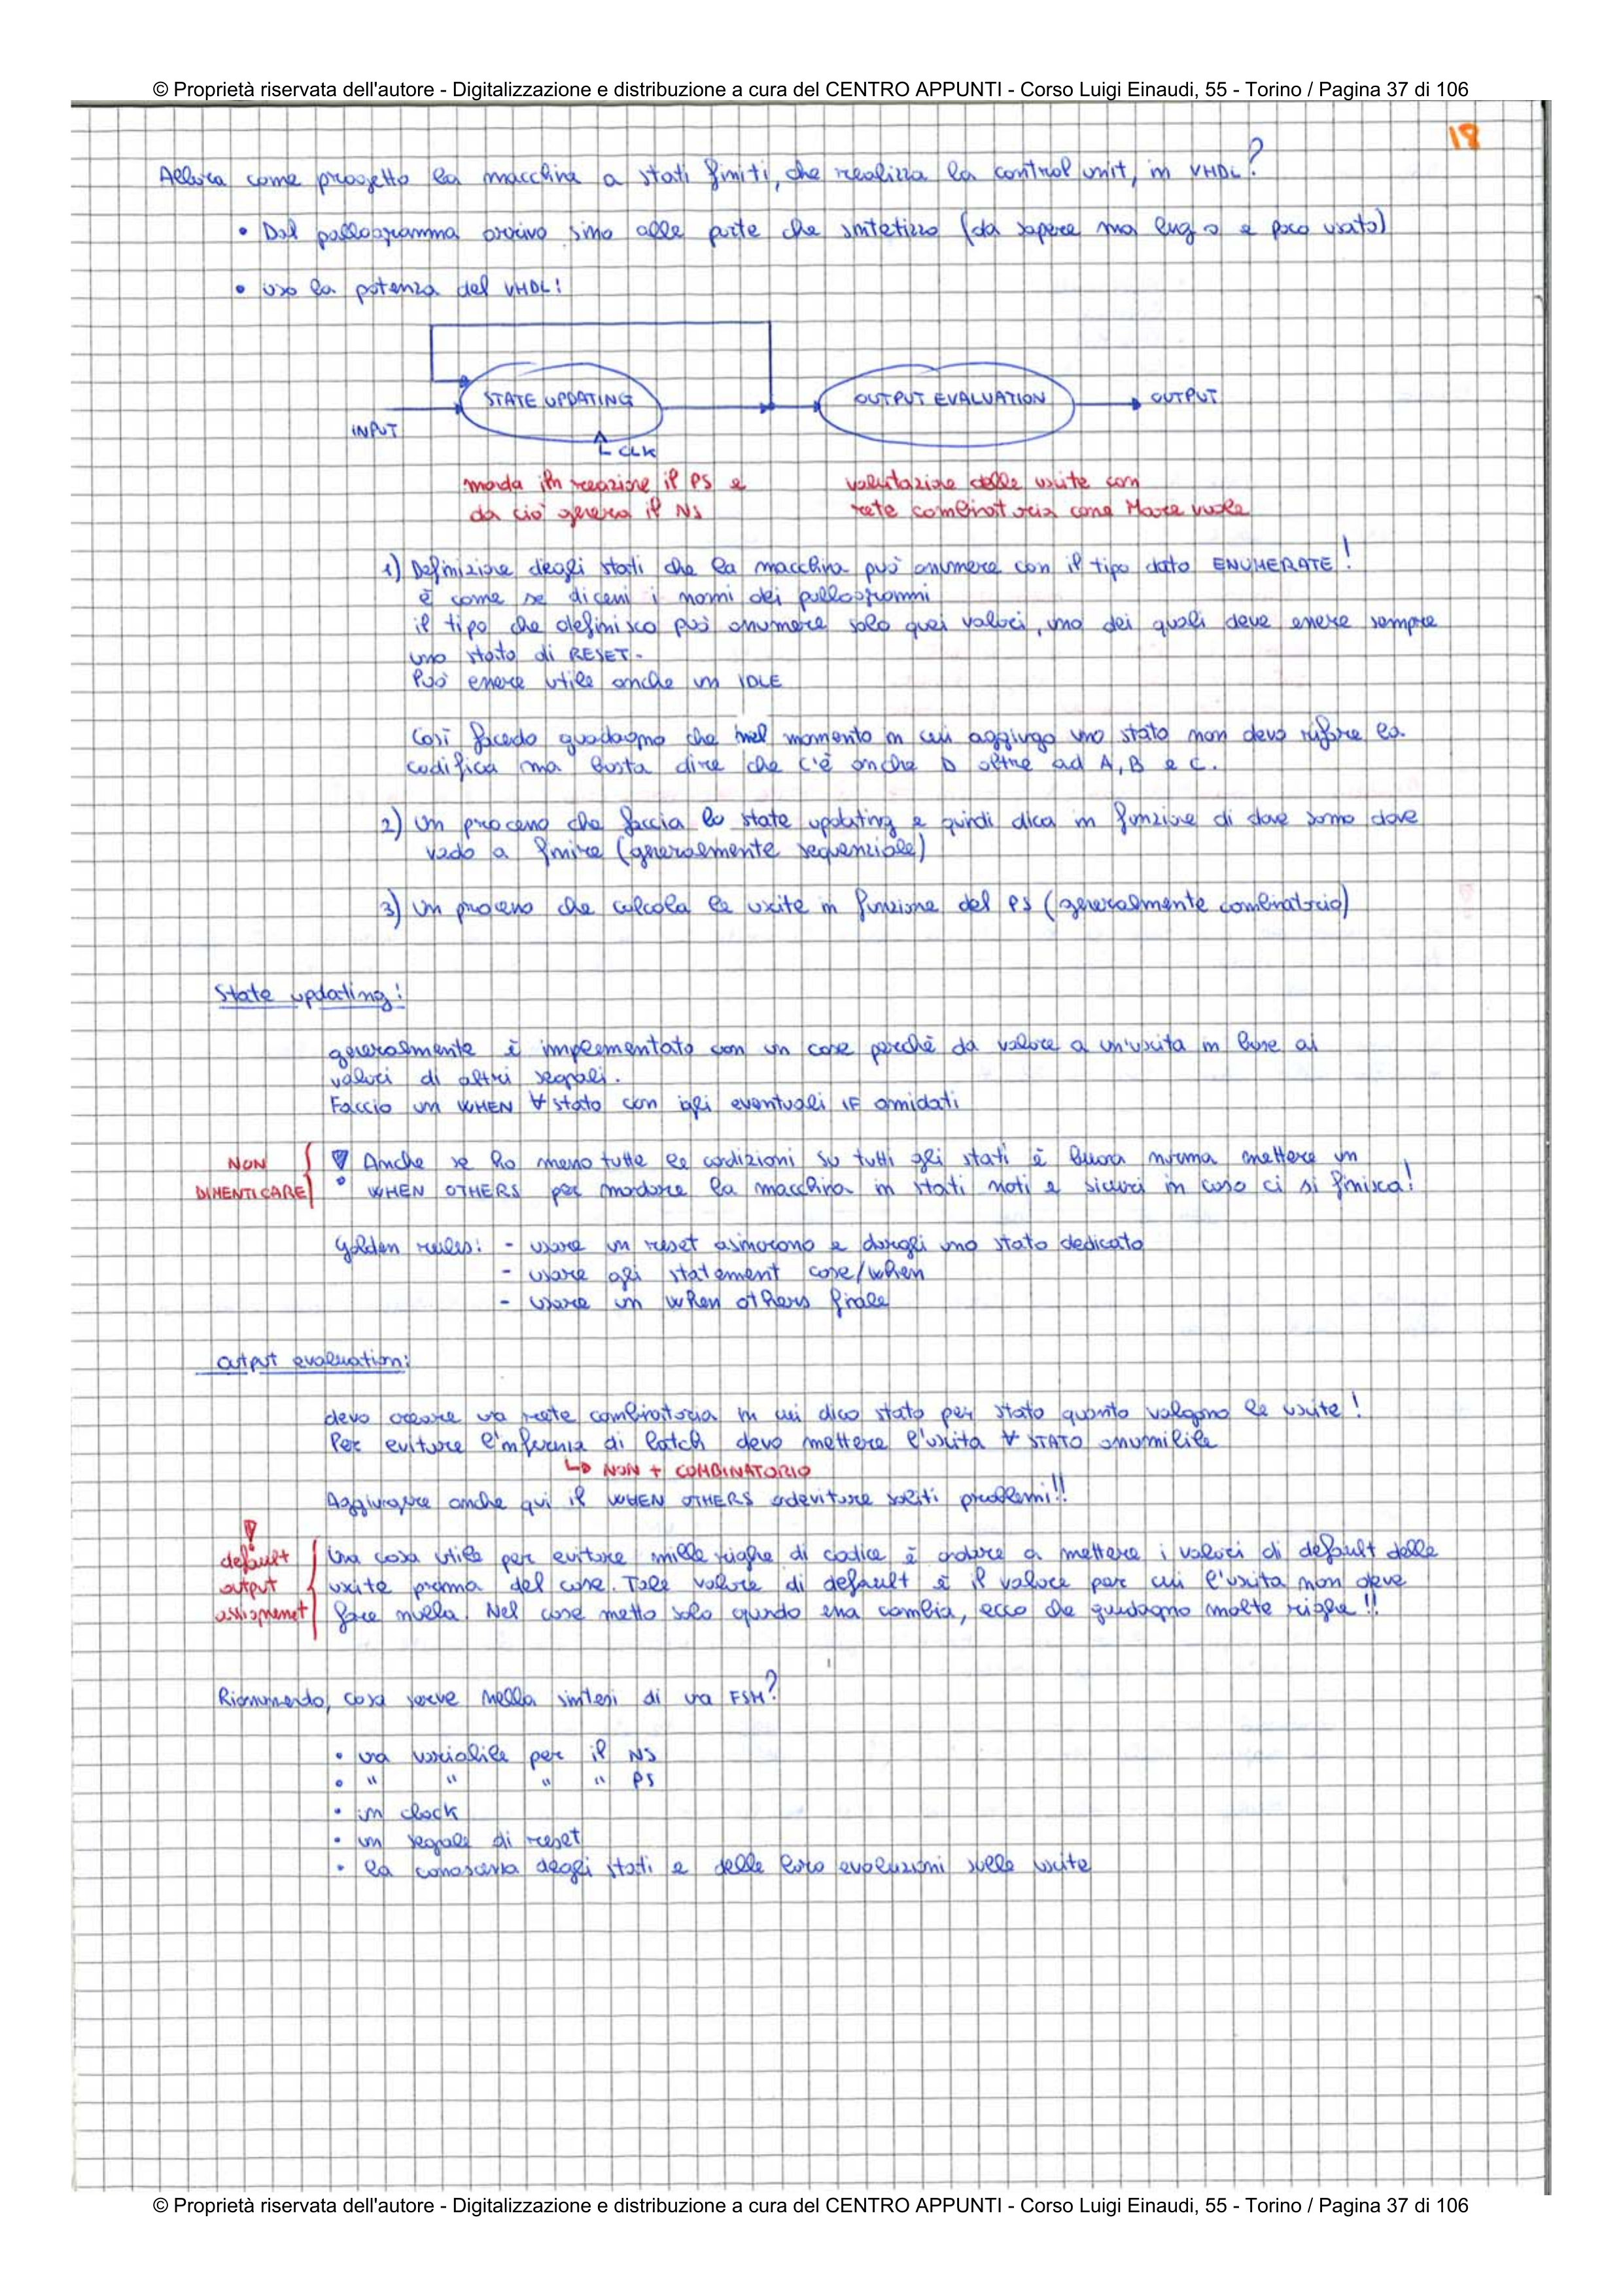 © Proprietà riservata dell'autore - Digitalizzazione e distribuzione a cura del CENTRO APPUNTI - Corso Luigi Einaudi, 55 - Torino / Pagina 37 di 106
18
Allora come progetto la macchina a stati finiti, che realizza la control unit, in VHDL?
• Dal pallogramma arrivo sino alle porte che sintetizzo (da sapere ma lungo e poco usato)
• uso la potenza del VHDL:
STATE UPDATING
OUTPUT EVALUATION
OUTPUT
INPUT
CLK
manda in reazione il PS e
da ciò genera il NS
valutazione delle uscite con
rete combinatoria come Moore vuole
1) Definizione degli stati che la macchina può assumere con il tipo dato ENUMERATE!
è come se dicessi i nomi dei pallogrammi
il tipo che definisco può assumere solo quei valori, uno dei quali deve essere sempre
uno stato di RESET.
Può essere utile anche un IDLE
Così facedo guadagno che nel momento in cui aggiungo uno stato non devo rifare la
codifica ma basta dire che c'è anche D oltre ad A, B e C.
2) Un processo che faccia lo state updating e quindi dica in funzione di dove sono dove
vado a finire (generalmente sequenziale)
3) Un processo che calcola le uscite in funzione del PS (generalmente combinatorio)
State updating:
generalmente è implementato con un case perchè da valore a un'uscita in base ai
valori di altri segnali.
Faccio un WHEN ∀ stato con gli eventuali IF annidati
NON
DIMENTICARE
Anche se ho messo tutte le condizioni su tutti gli stati è buona norma mettere un
WHEN OTHERS per mandare la macchina in stati noti e sicuri in caso ci si finisca!
Golden rules: - usare un reset asincrono e dargli uno stato dedicato
- usare gli statement case/when
- usare un when others finale
output evaluation:
devo creare una rete combinatoria in cui dico stato per stato quanto valgono le uscite!
Per evitare l'inferenza di latch devo mettere l'uscita ∀ STATO assumibile
↳ NON + COMBINATORIO
Aggiungere anche qui il WHEN OTHERS ad evitare soliti problemi!!
default
output
assignment
Una cosa utile per evitare mille righe di codice è andare a mettere i valori di default delle
uscite prima del case. Tale valore di default è il valore per cui l'uscita non deve
fare nulla. Nel case metto solo quando essa cambia, ecco che guadagno molte righe!!
Riassumendo, cosa serve nella sintesi di una FSM?
• una variabile per il NS
• " " " " PS
• un clock
• un segnale di reset
• la conoscenza degli stati e delle loro evoluzioni sulle uscite
© Proprietà riservata dell'autore - Digitalizzazione e distribuzione a cura del CENTRO APPUNTI - Corso Luigi Einaudi, 55 - Torino / Pagina 37 di 106